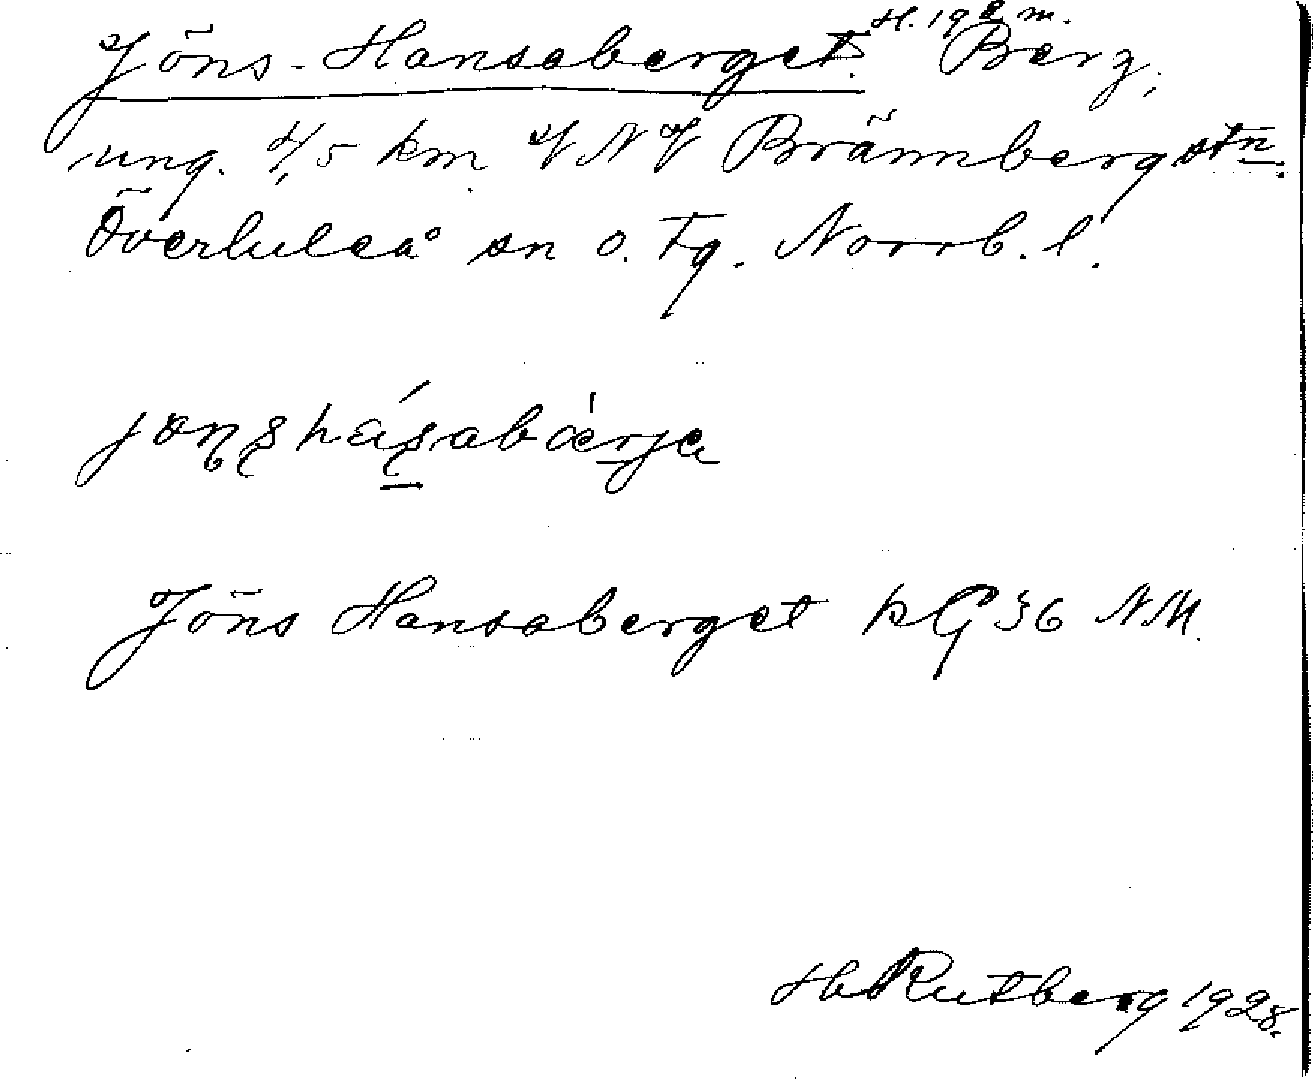 Jöns-Hansaberget. H. 192 m. Berg,
ung. 4,5 km VNV Brännberg stn.
Överluleå sn o. tg. Norrb. l.
Jöns Hansaberget kG 36 NM.
H Rutberg 1928.